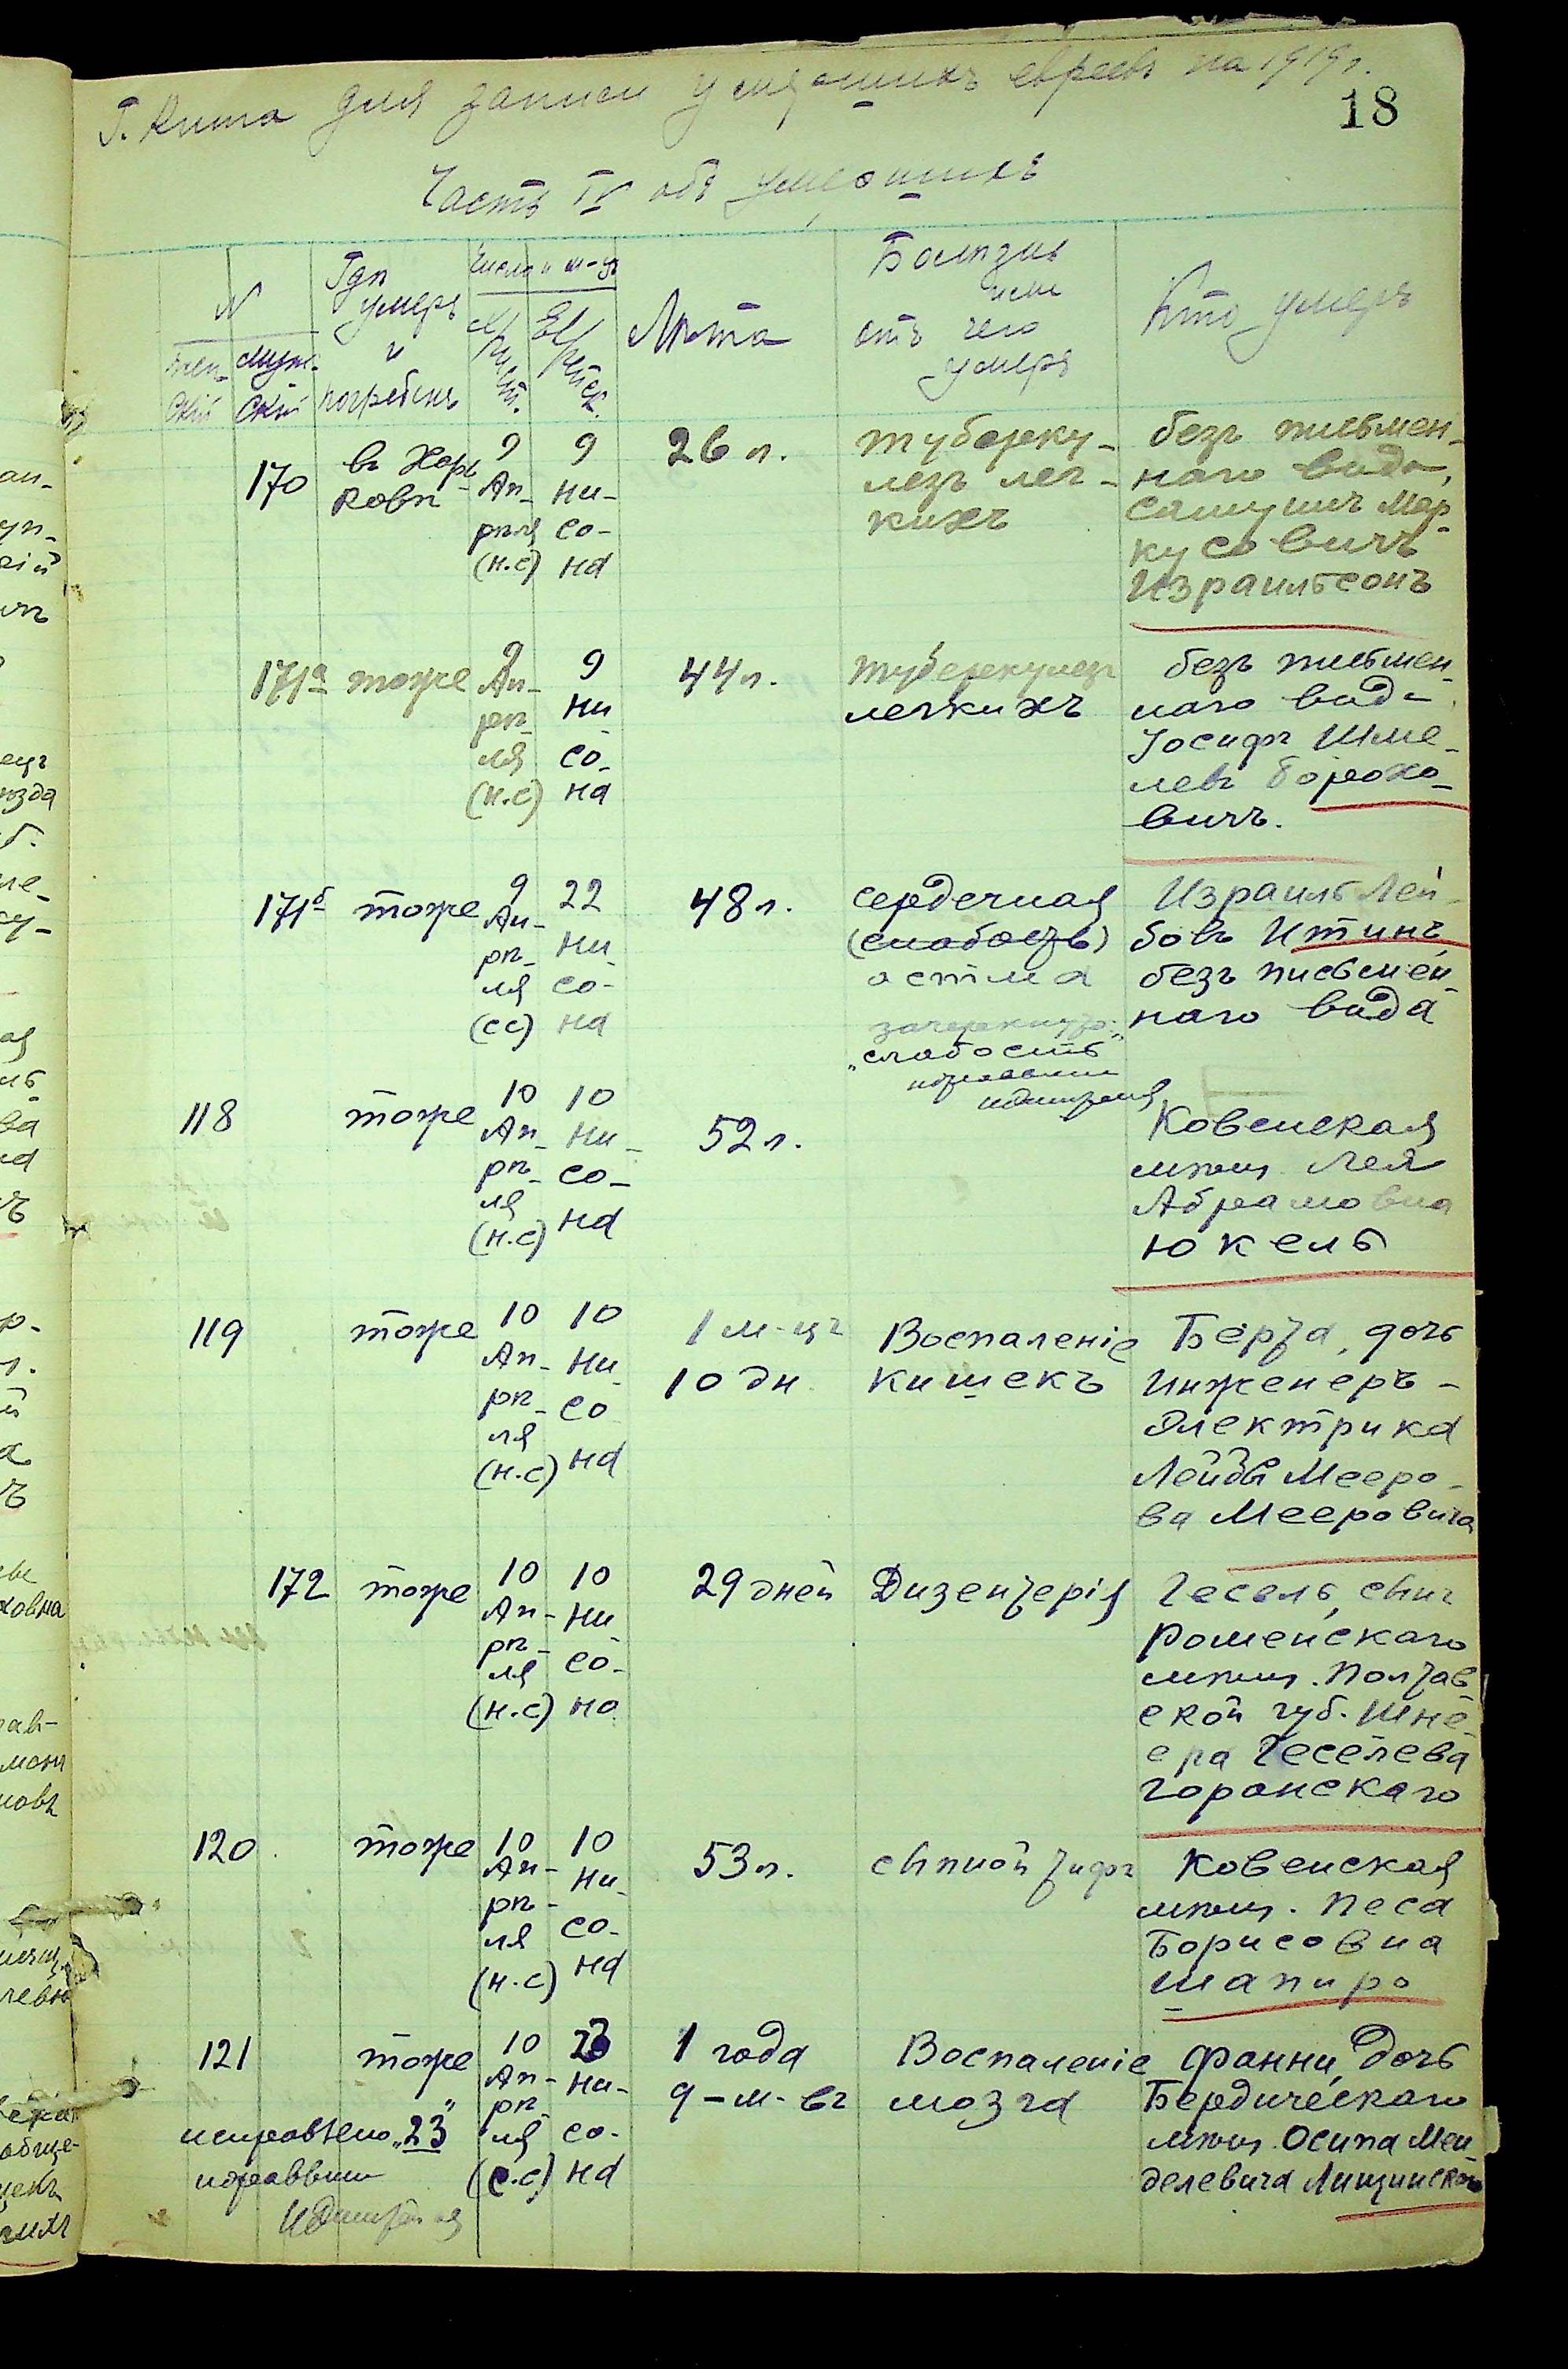 Книга для записи умершихъ евреевъ на 1919 г.
18
Часть IV объ умершихъ
N
Жен-
скій
Муж-
скій
Гдѣ
умеръ
и
погребенъ
Число и м-цъ
Хри
ст.
Ев
рейск.
Лѣта
Болѣзнь
или
отъ чего
умеръ
Кто умеръ
170
въ Харь
ковѣ
9
Ап-
рѣля
(н.с)
9
Ни-
со-
на
26 л.
туберку-
лезъ лег-
кихъ
безъ письмен-
наго вида,
Самуилъ Мар-
кусовичъ
Израильсонъ
171а
тоже
9
Ап-
рѣ-
ля
(н.с)
9
Ни
со-
на
44 л.
туберекулезъ
легкихъ
безъ письмен-
наго вида
Іосифъ Шме-
левъ Борохо-
вичъ.
171б
тоже
9
Ап-
рѣ-
ля
(сс)
22
Ни
со-
на
48 л.
сердечная
(слабость)
астма
зачеркнуто:
„слабость"
Израиль Лей-
бовъ Итинъ,
безъ письмен-
наго вида
118
тоже
10
Ап-
рѣ-
ля
(н.с)
10
Ни-
со-
на
52 л.
Ковенская
мѣщ. Лея
Абрамовна
Юкель
119
тоже
10
Ап-
рѣ-
ля
(н.с)
10
Ни-
со
на
1 м-цъ
10 дн.
Воспаленіе
кишекъ
Берта, дочь
Инженеръ-
Электрика
Лейбы Мееро-
ва Мееровича
172
тоже
10
Ап-
рѣ-
ля
(н.с)
10
Ни
со-
на
29 дней
Дизентерія
Гесель, сынъ
Роменскаго
мѣщ. Полтав-
ской губ. Шне-
ера Геселева
Горонскаго
120
тоже
10
Ап-
рѣ-
ля
(н.с)
10
Ни-
со-
на
53 л.
сыпной тифъ
Ковенская
мѣщ. Песа
Борисовна
Шапиро
121
тоже
10
Ап-
рѣ-
ля
(с.с)
23
Ни-
со-
на
1 года
9-м-въ
Воспаленіе
мозга
Фанни, дочь
Бердическаго
мѣщ. Осипа Мен-
делевича Лищинскаго
исправлено „23"